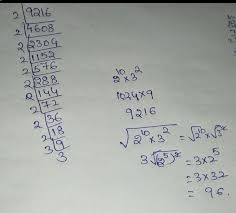 2 | 9216
2 | 4608
2 | 2304
2 | 1152
2 | 576
2 | 288
2 | 144
2 | 72
2 | 36
2 | 18
3 | 9
3
2¹⁰ × 3²
1024 × 9
9216
√(2¹⁰ × 3²) = √2¹⁰ × √3²
3√(2⁵)² = 3 × 2⁵
= 3 × 32
= 96.